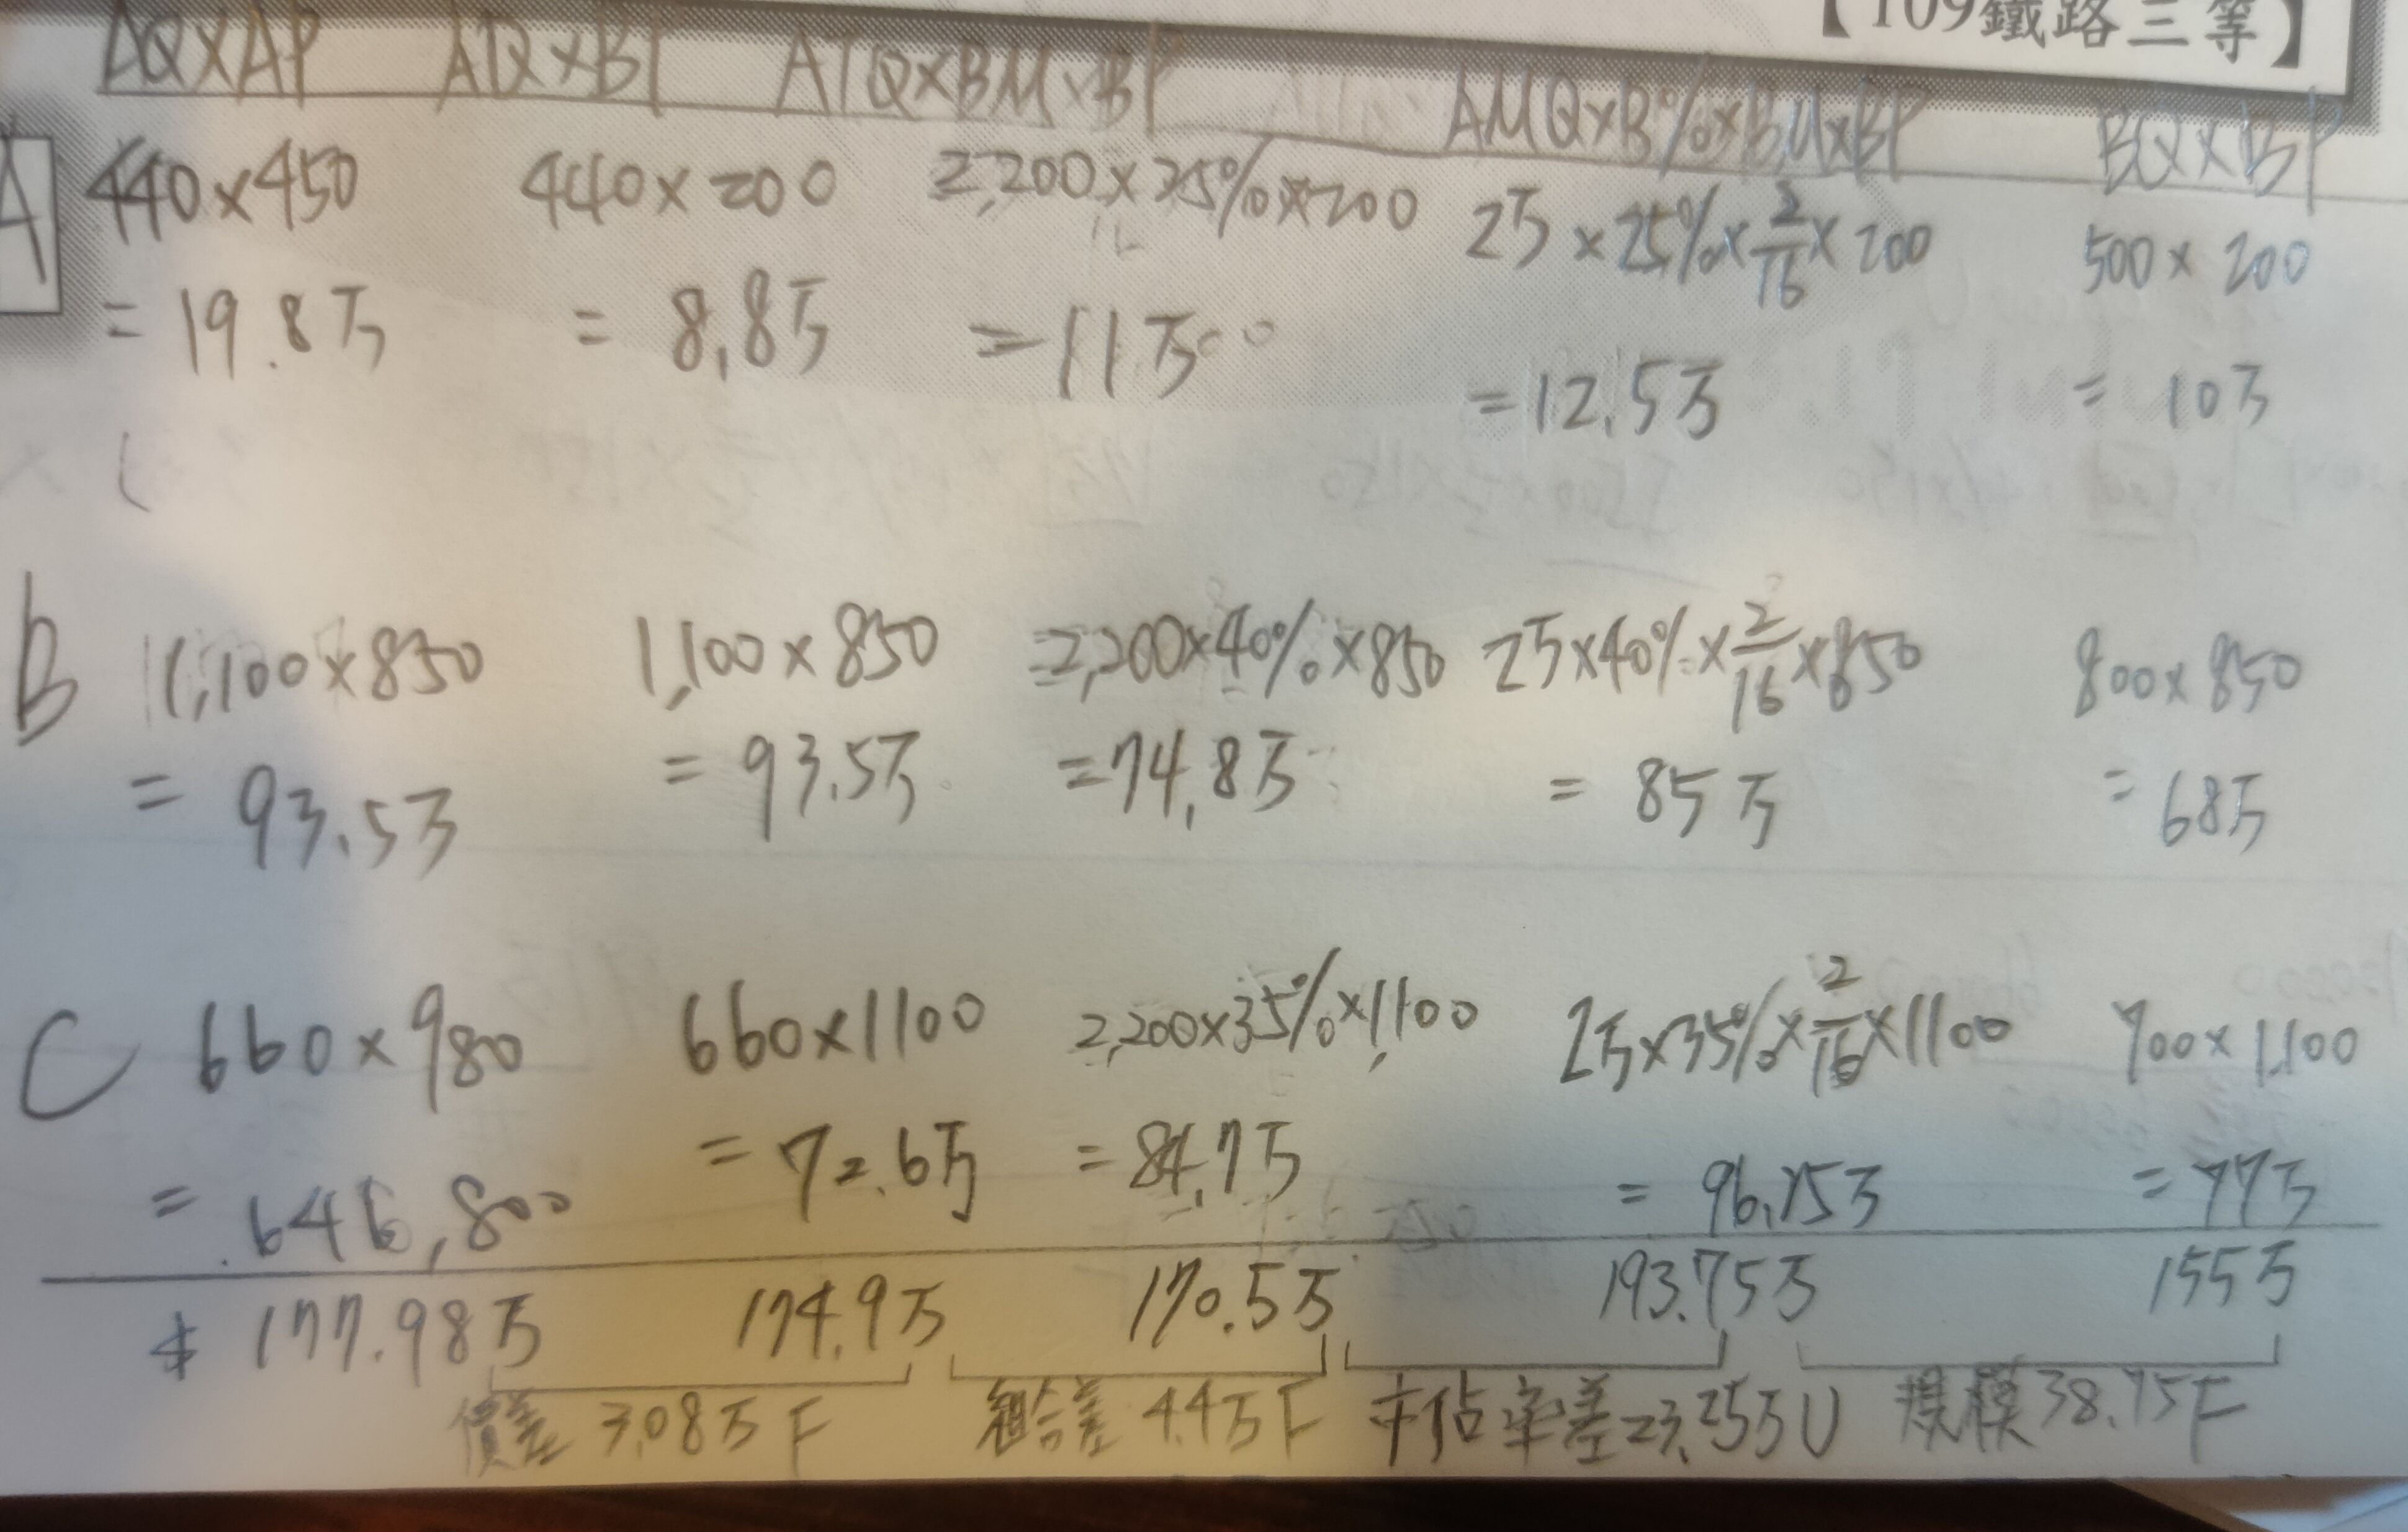 【109鐵路三等】
AQ×AP ATQ×BP ATQ×BM×BP AMQ×B%×BM×BP BQ×BP
A 440×450 440×200 2,200×25%×200 2万×25%×2/16×200 500×200
=19.8万 =8.8万 =11万 =12.5万 =10万
B 1,100×850 1,100×850 =2,200×40%×850 2万×40%×2/16×850 800×850
=93.5万 =93.5万 =74.8万 =85万 =68万
C 660×980 660×1100 2,200×35%×1,100 2万×35%×2/16×1100 700×1,100
=646,800 =72.6万 =84.7万 =96.25万 =77万
$177.98万 174.9万 170.5万 193.75万 155万
價差 3.08万F 組合差 4.4万F 市佔率差23.25万U 規模38.75F